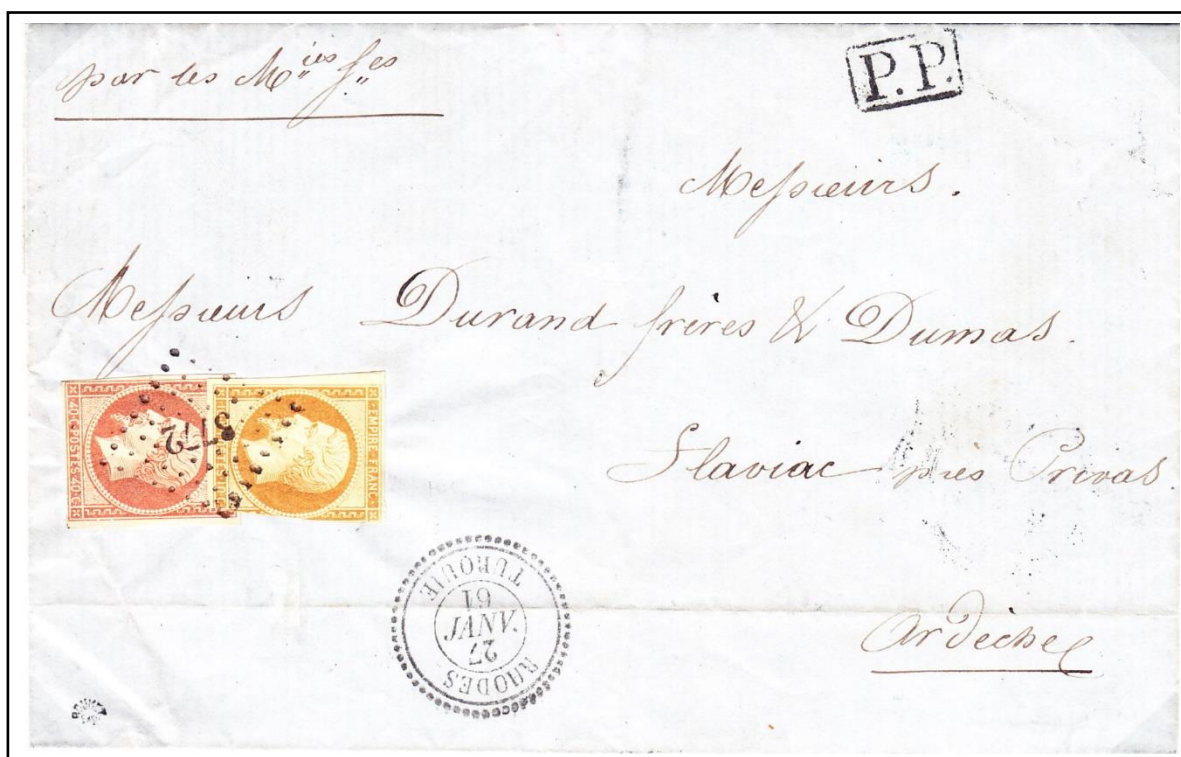 par les M.ies f.es
P.P.
Messieurs.
Messieurs Durand frères & Dumas.
Flaviac près Privas
Ardèche
40·C·POSTES·40·C
EMPIRE·FRANC·
3772
RHODES
27
JANV
61
TURQUIE